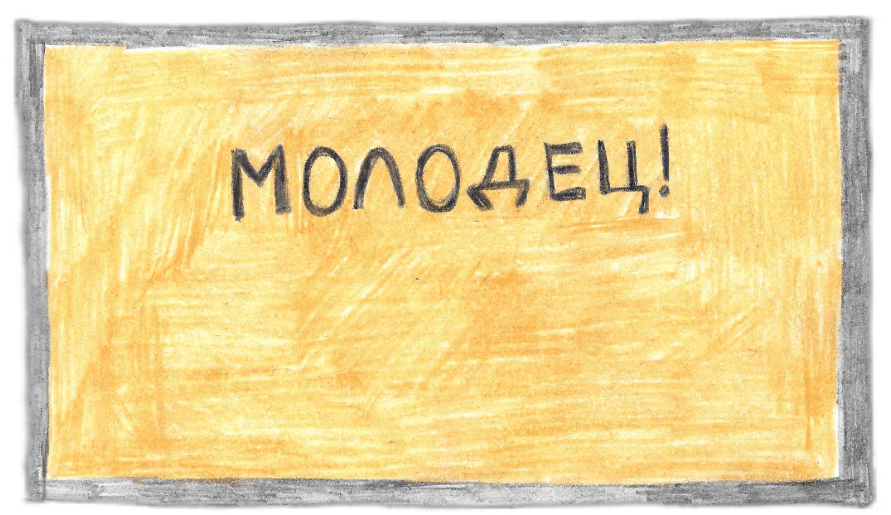 МОЛОДЕЦ!